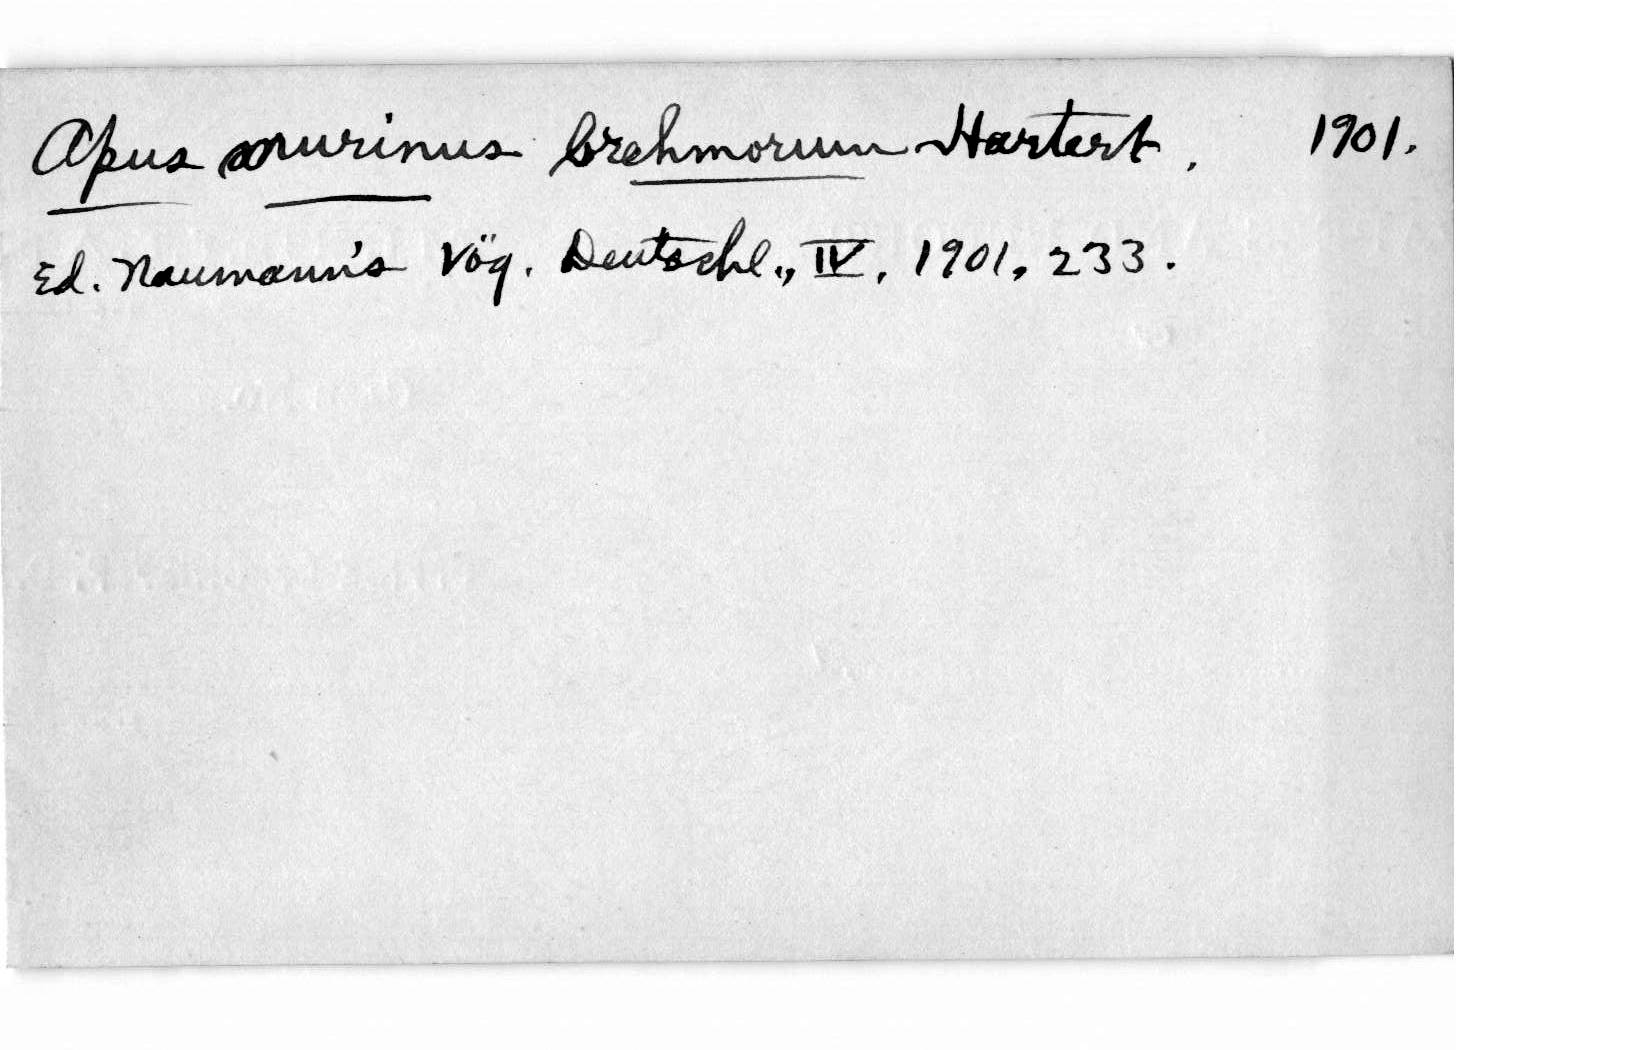 Apus murinus brehmorum Hartert. 1901.
Ed. Naumann's Vög. Deutschl., IV, 1901, 233.